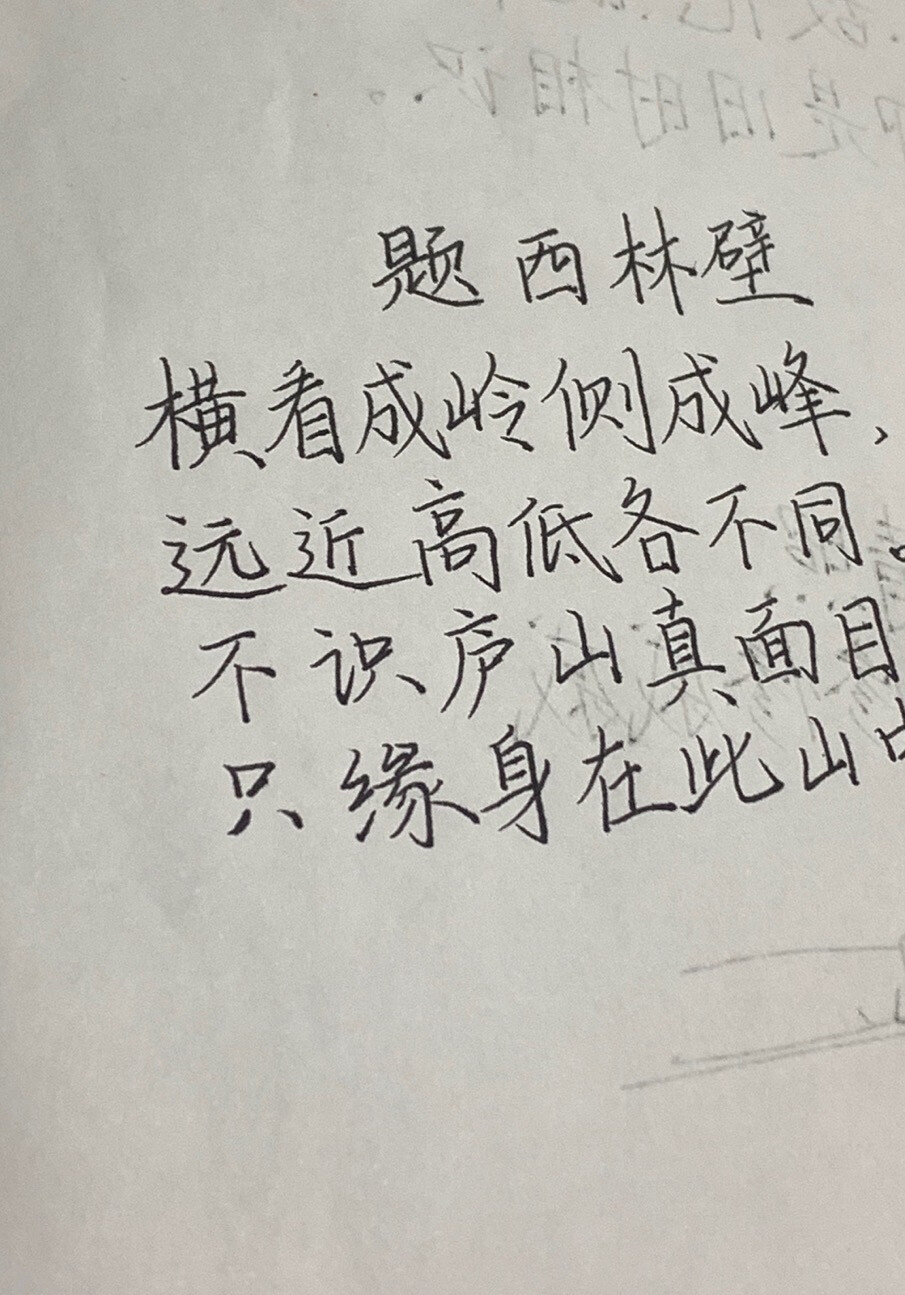 却是旧时相识。
题西林壁
横看成岭侧成峰，
远近高低各不同。
不识庐山真面目
只缘身在此山中